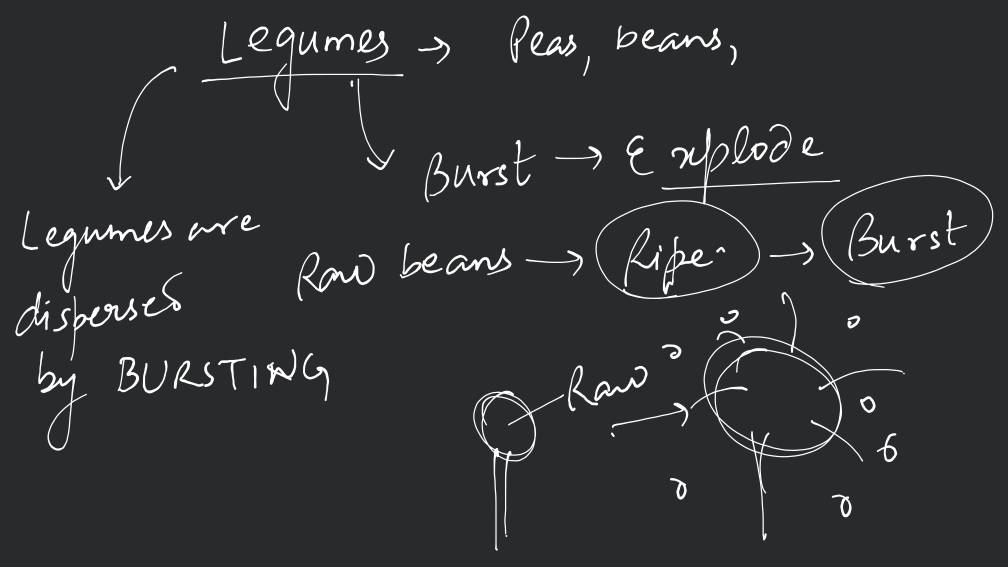 Legumes → Peas, beans,
Burst → Explode
Legumes are
dispersed
by BURSTING
Raw beans → Ripe → Burst
Raw